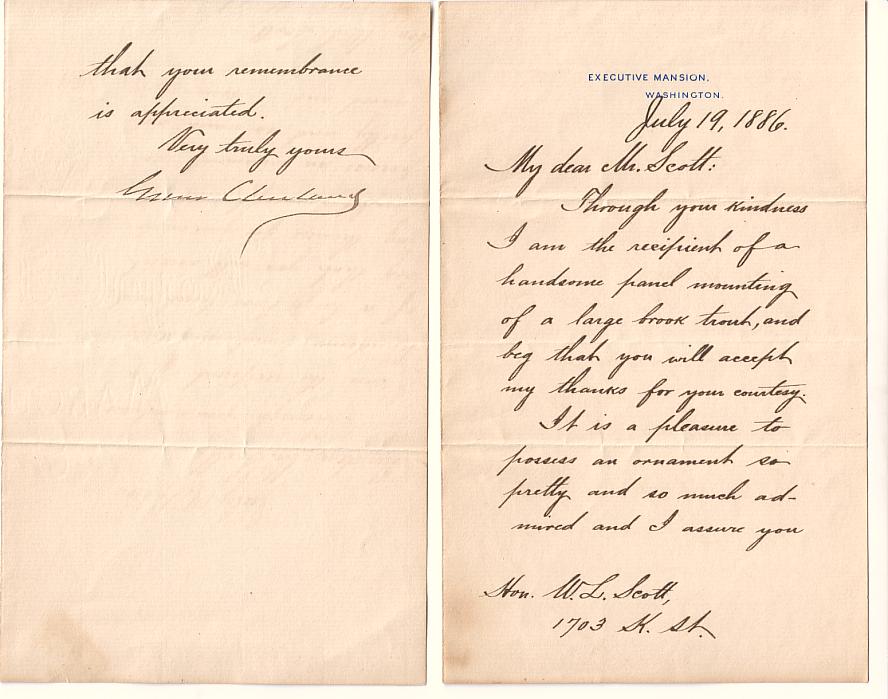 EXECUTIVE MANSION,
WASHINGTON.
July 19, 1886.
My dear Mr. Scott:
Through your kindness
I am the recipient of a
handsome panel mounting
of a large brook trout, and
beg that you will accept
my thanks for your courtesy.
It is a pleasure to
possess an ornament so
pretty and so much ad-
mired and I assure you
Hon. W. L. Scott,
1703 K. St.
that your remembrance
is appreciated.
Very truly yours
Grover Cleveland